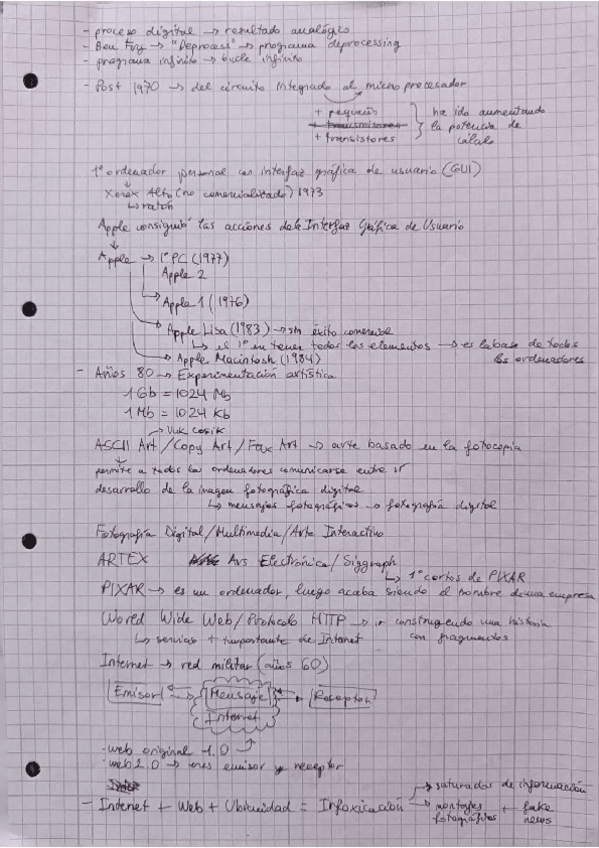 - proceso digital → resultado analógico
- Ben Fry → "Deprocess" → programa deprocessing
- programa infinito → bucle infinito
- Post 1970 → del circuito integrado al micro procesador
+ pequeños
+ transmisores
+ transistores
ha ido aumentando
la potencia de
cálculo
1º ordenador personal con interfaz gráfica de usuario (GUI)
Xerox Alto (no comercializado) 1973
↳ ratón
Apple consiguió las acciones de la Interfaz Gráfica de Usuario
Apple → 1º PC (1977)
Apple 2
Apple 1 (1976)
Apple Lisa (1983) → sin éxito comercial
↳ el 1º en tener todos los elementos → es la base de todos
los ordenadores
Apple Macintosh (1984)
- Años 80 → Experimentación artística
1 Gb = 1024 Mb
1 Mb = 1024 Kb
→ Vuk Cosik
ASCII Art / Copy Art / Fax Art → arte basado en la fotocopia
permite a todos los ordenadores comunicarse entre sí
desarrollo de la imagen fotográfica digital
↳ mensajes fotográficos → fotografía digital
Fotografía Digital/Multimedia/Arte Interactivo
ARTEX Ars Electrónica/Siggraph
↳ 1º cortos de PIXAR
PIXAR → es un ordenador, luego acaba siendo el nombre de una empresa
Wored Wide Web/Protocolo HTTP → ir construyendo una historia
con fragmentos
↳ servicio + importante de Internet
Internet → red militar (años 60)
Emisor Mensaje Receptor
Internet
· web original 1.0
· web 2.0 → eres emisor y receptor
- Internet + Web + Ubicuidad = Infoxicación → saturados de información
→ montajes fotográficos + fake news